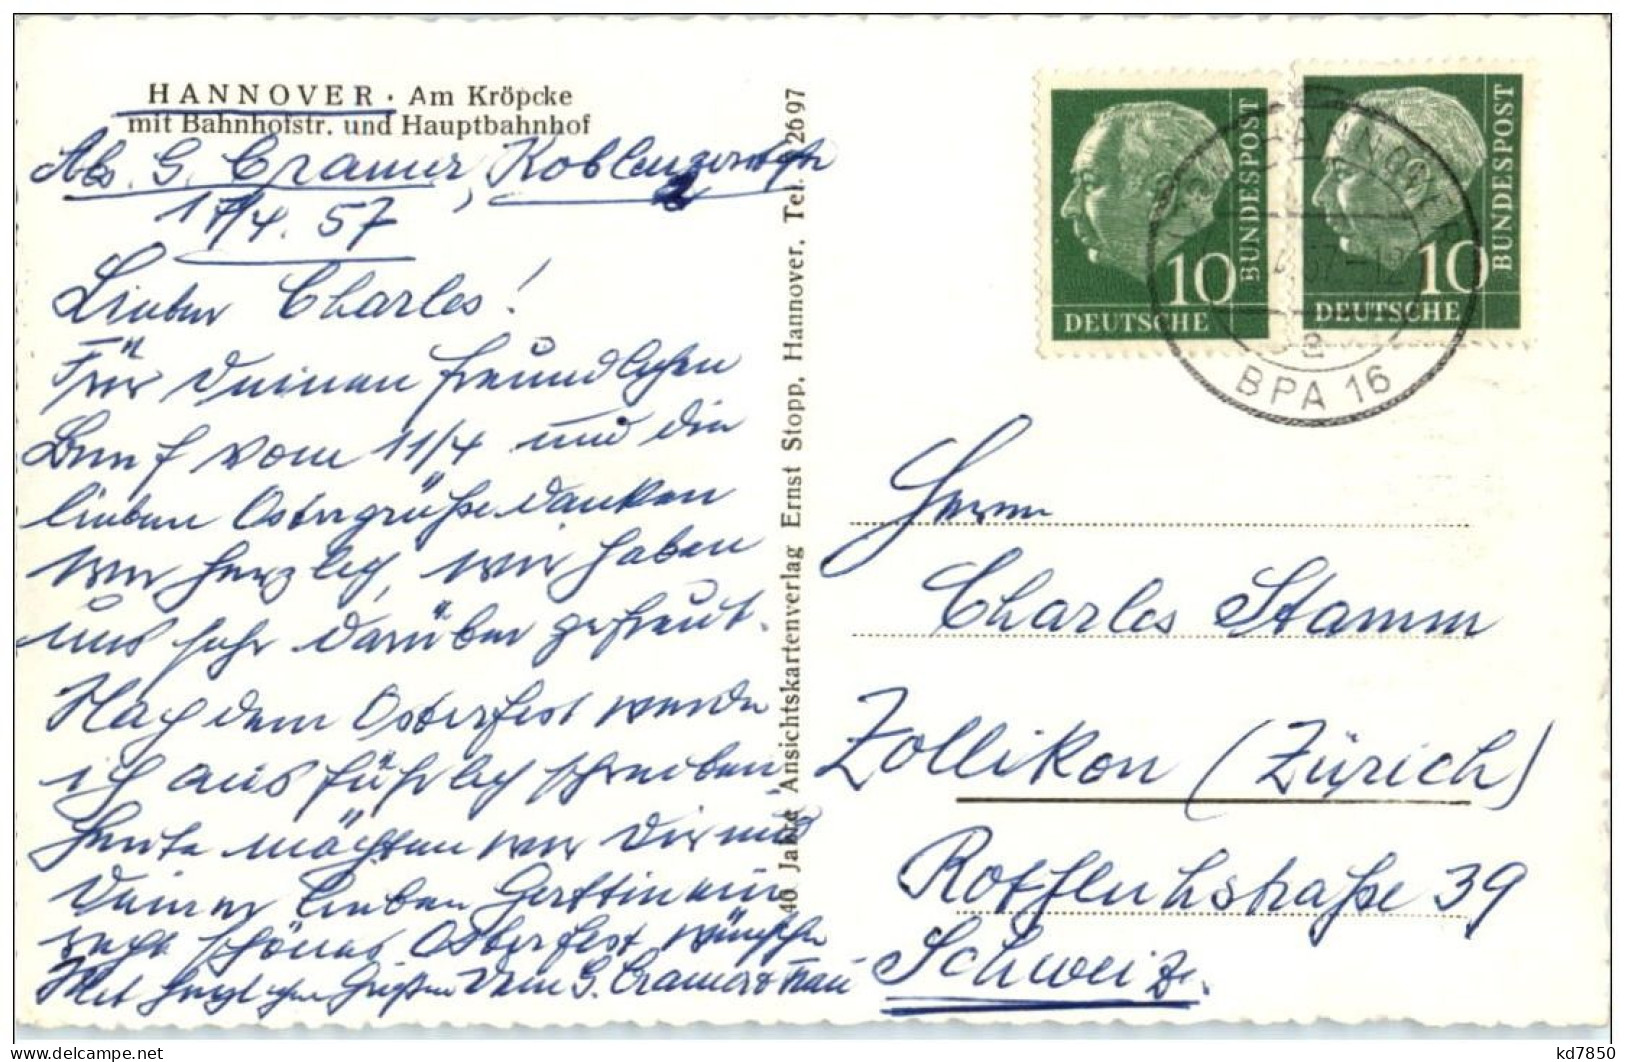 HANNOVER · Am Kröpcke
mit Bahnhofstr. und Hauptbahnhof
Abs. G. Cramer, Koblenzerstr.
17/4. 57
Lieber Charles!
Für Deinen freundlichen
Brief vom 11/4 und die
lieben Ostergrüße danken
wir herzlich, wir haben
uns sehr darüber gefreut.
Nach dem Osterfest werde
ich ausführlich schreiben
heute möchten wir Dir und
Deiner lieben Gattin ein
recht schönes Osterfest wünschen
Mit herzlichen Grüßen Dein G. Cramer & Frau
40 Jahre Ansichtskartenverlag Ernst Stopp, Hannover, Tel. 2697
10
DEUTSCHE
BUNDESPOST
10
DEUTSCHE
BUNDESPOST
HANNOVER
.57-12
a
BPA 16
Herrn
Charles Stamm
Zollikon (Zürich)
Rotfluhstraße 39
Schweiz.
kd7850